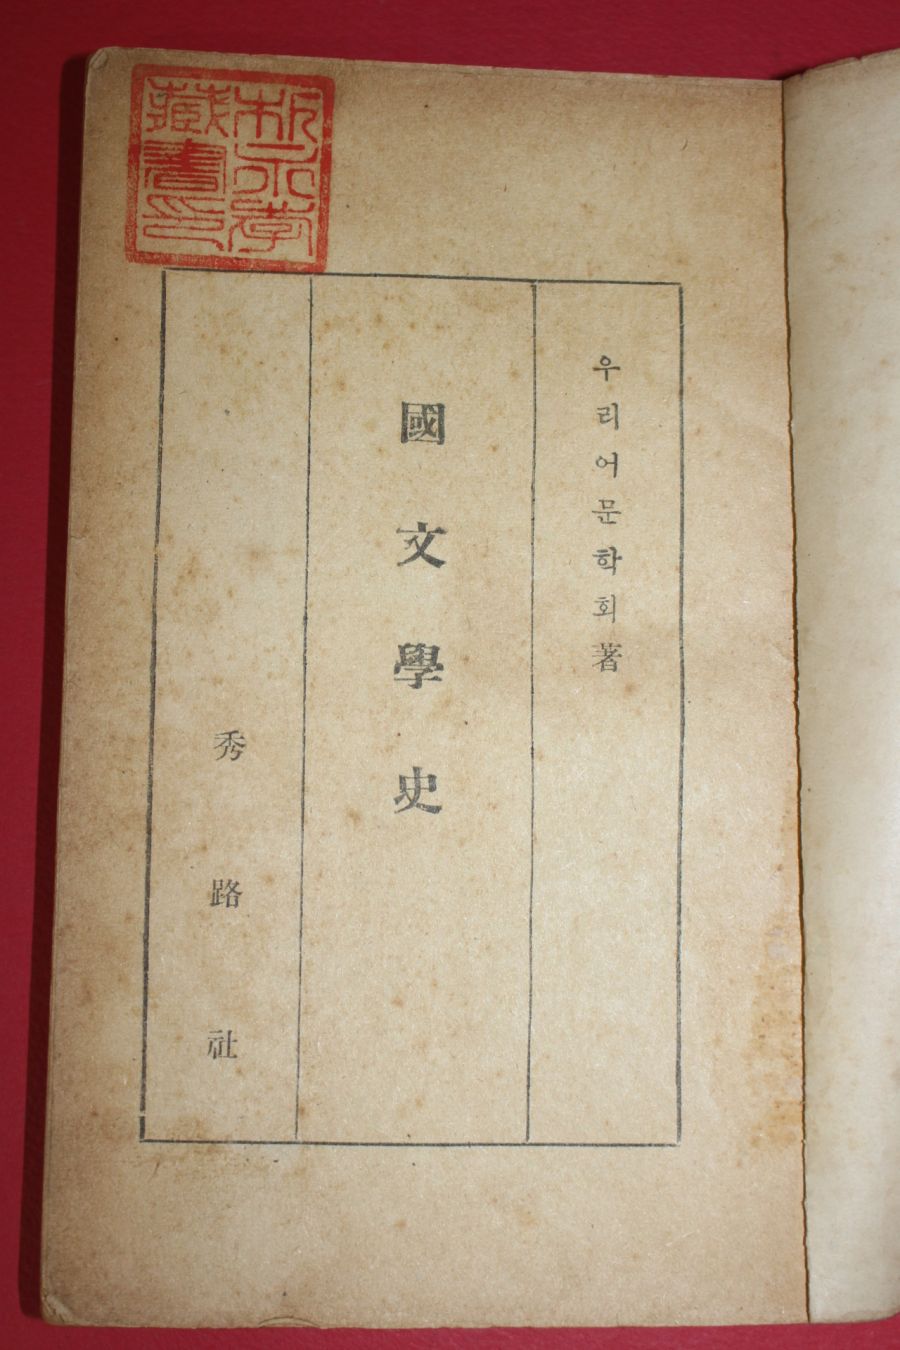 藏書印
우리어문학회著
國文學史
秀路社